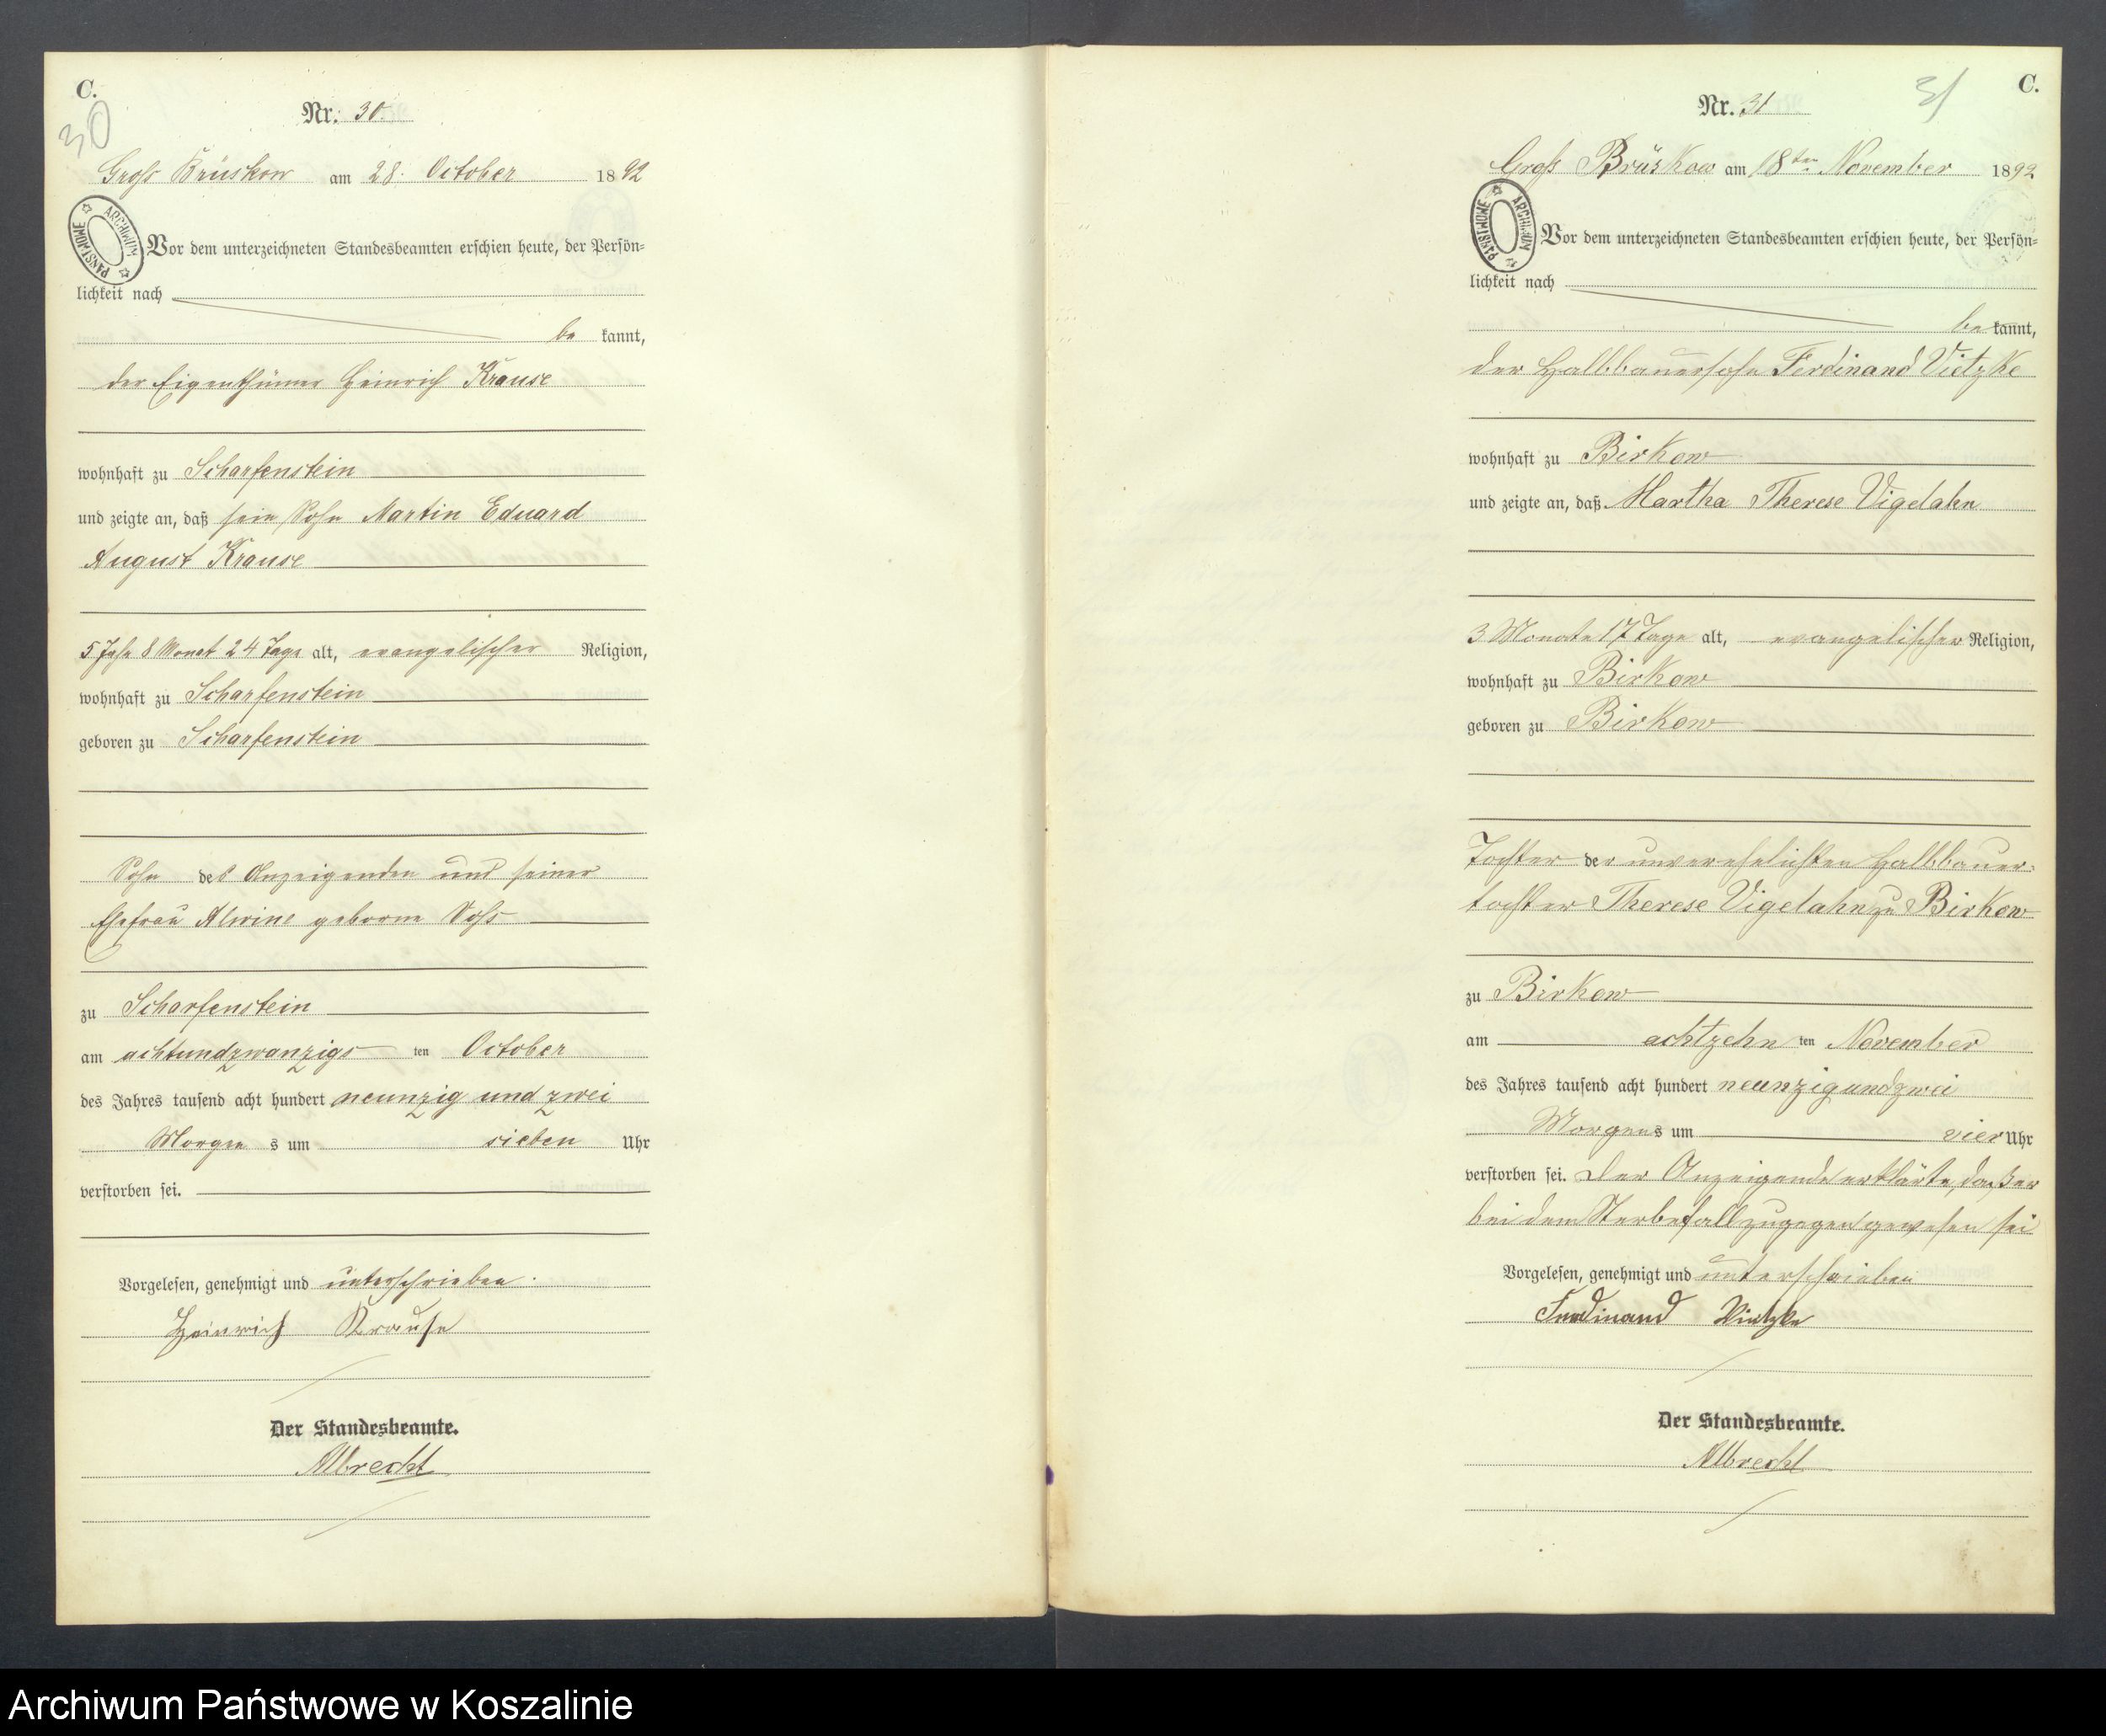 C.
30
Nr. 30.
Gross Brüskow am 28. October 1892
ARCHIWUM PAŃSTWOWE
Vor dem unterzeichneten Standesbeamten erschien heute, der Persön=
lichkeit nach
be kannt,
der Eigenthümer Heinrich Krause
wohnhaft zu Scharfenstein
und zeigte an, daß sein Sohn Martin Eduard
August Krause
5 Jahr 8 Monat 24 Tage alt, evangelischer Religion,
wohnhaft zu Scharfenstein
geboren zu Scharfenstein
Sohn des Anzeigenden und seiner
Ehefrau Alwine geborne Voss
zu Scharfenstein
am achtundzwanzigs ten October
des Jahres tausend acht hundert neunzig und zwei
Morgen s um sieben Uhr
verstorben sei.
Vorgelesen, genehmigt und unterschrieben.
Heinrich Krause
Der Standesbeamte.
Albrecht
C.
31
Nr. 31
Gross Brüskow am 18ten November 1892
ARCHIWUM PAŃSTWOWE
Vor dem unterzeichneten Standesbeamten erschien heute, der Persön=
lichkeit nach
be kannt,
der Halbbauersohn Ferdinand Vietzke
wohnhaft zu Birkow
und zeigte an, daß Martha Therese Vigelahn
3 Monate 17 Tage alt, evangelischer Religion,
wohnhaft zu Birkow
geboren zu Birkow
Tochter der unverehelichten Halbbauer-
tochter Therese Vigelahn zu Birkow
zu Birkow
am achtzehn ten November
des Jahres tausend acht hundert neunzigundzwei
Morgens um vier Uhr
verstorben sei. Der Anzeigende erklärte, daß er
bei dem Sterbefall zugegen gewesen sei
Vorgelesen, genehmigt und unterschrieben
Ferdinand Vietzke
Der Standesbeamte.
Albrecht
Archiwum Państwowe w Koszalinie